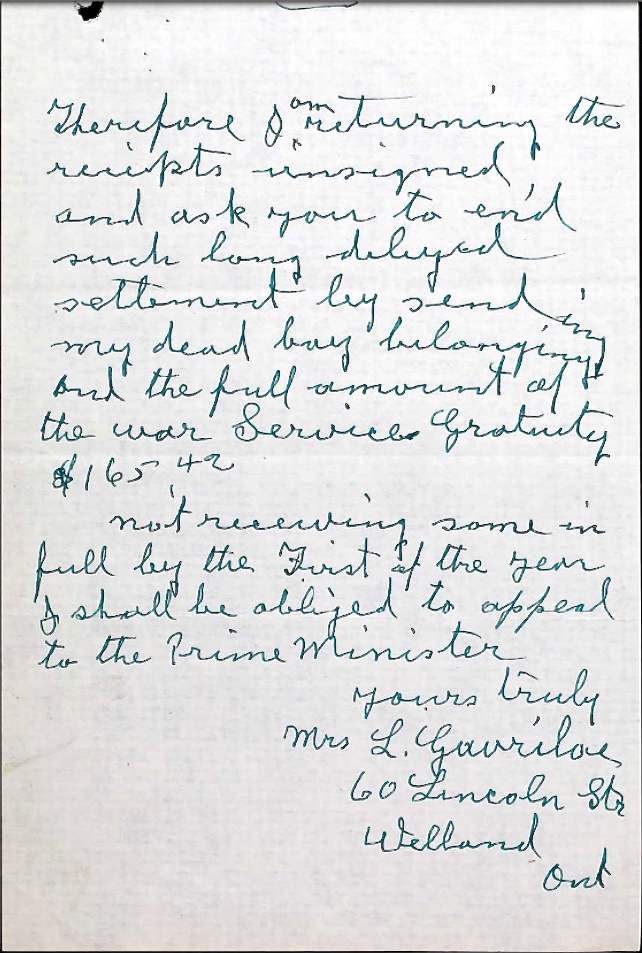 Therefore I am returning the
reciepts unsigned,
and ask you to end
such long delayed
settlement by sending
my dead boy belongings
and the full amount of
the war Service Gratuity
$165.42
not receiving same in
full by the First of the year
I shall be obliged to appeal
to the Prime Minister
yours truly
Mrs L. Gavriloe
60 Lincoln Str
Welland
Ont